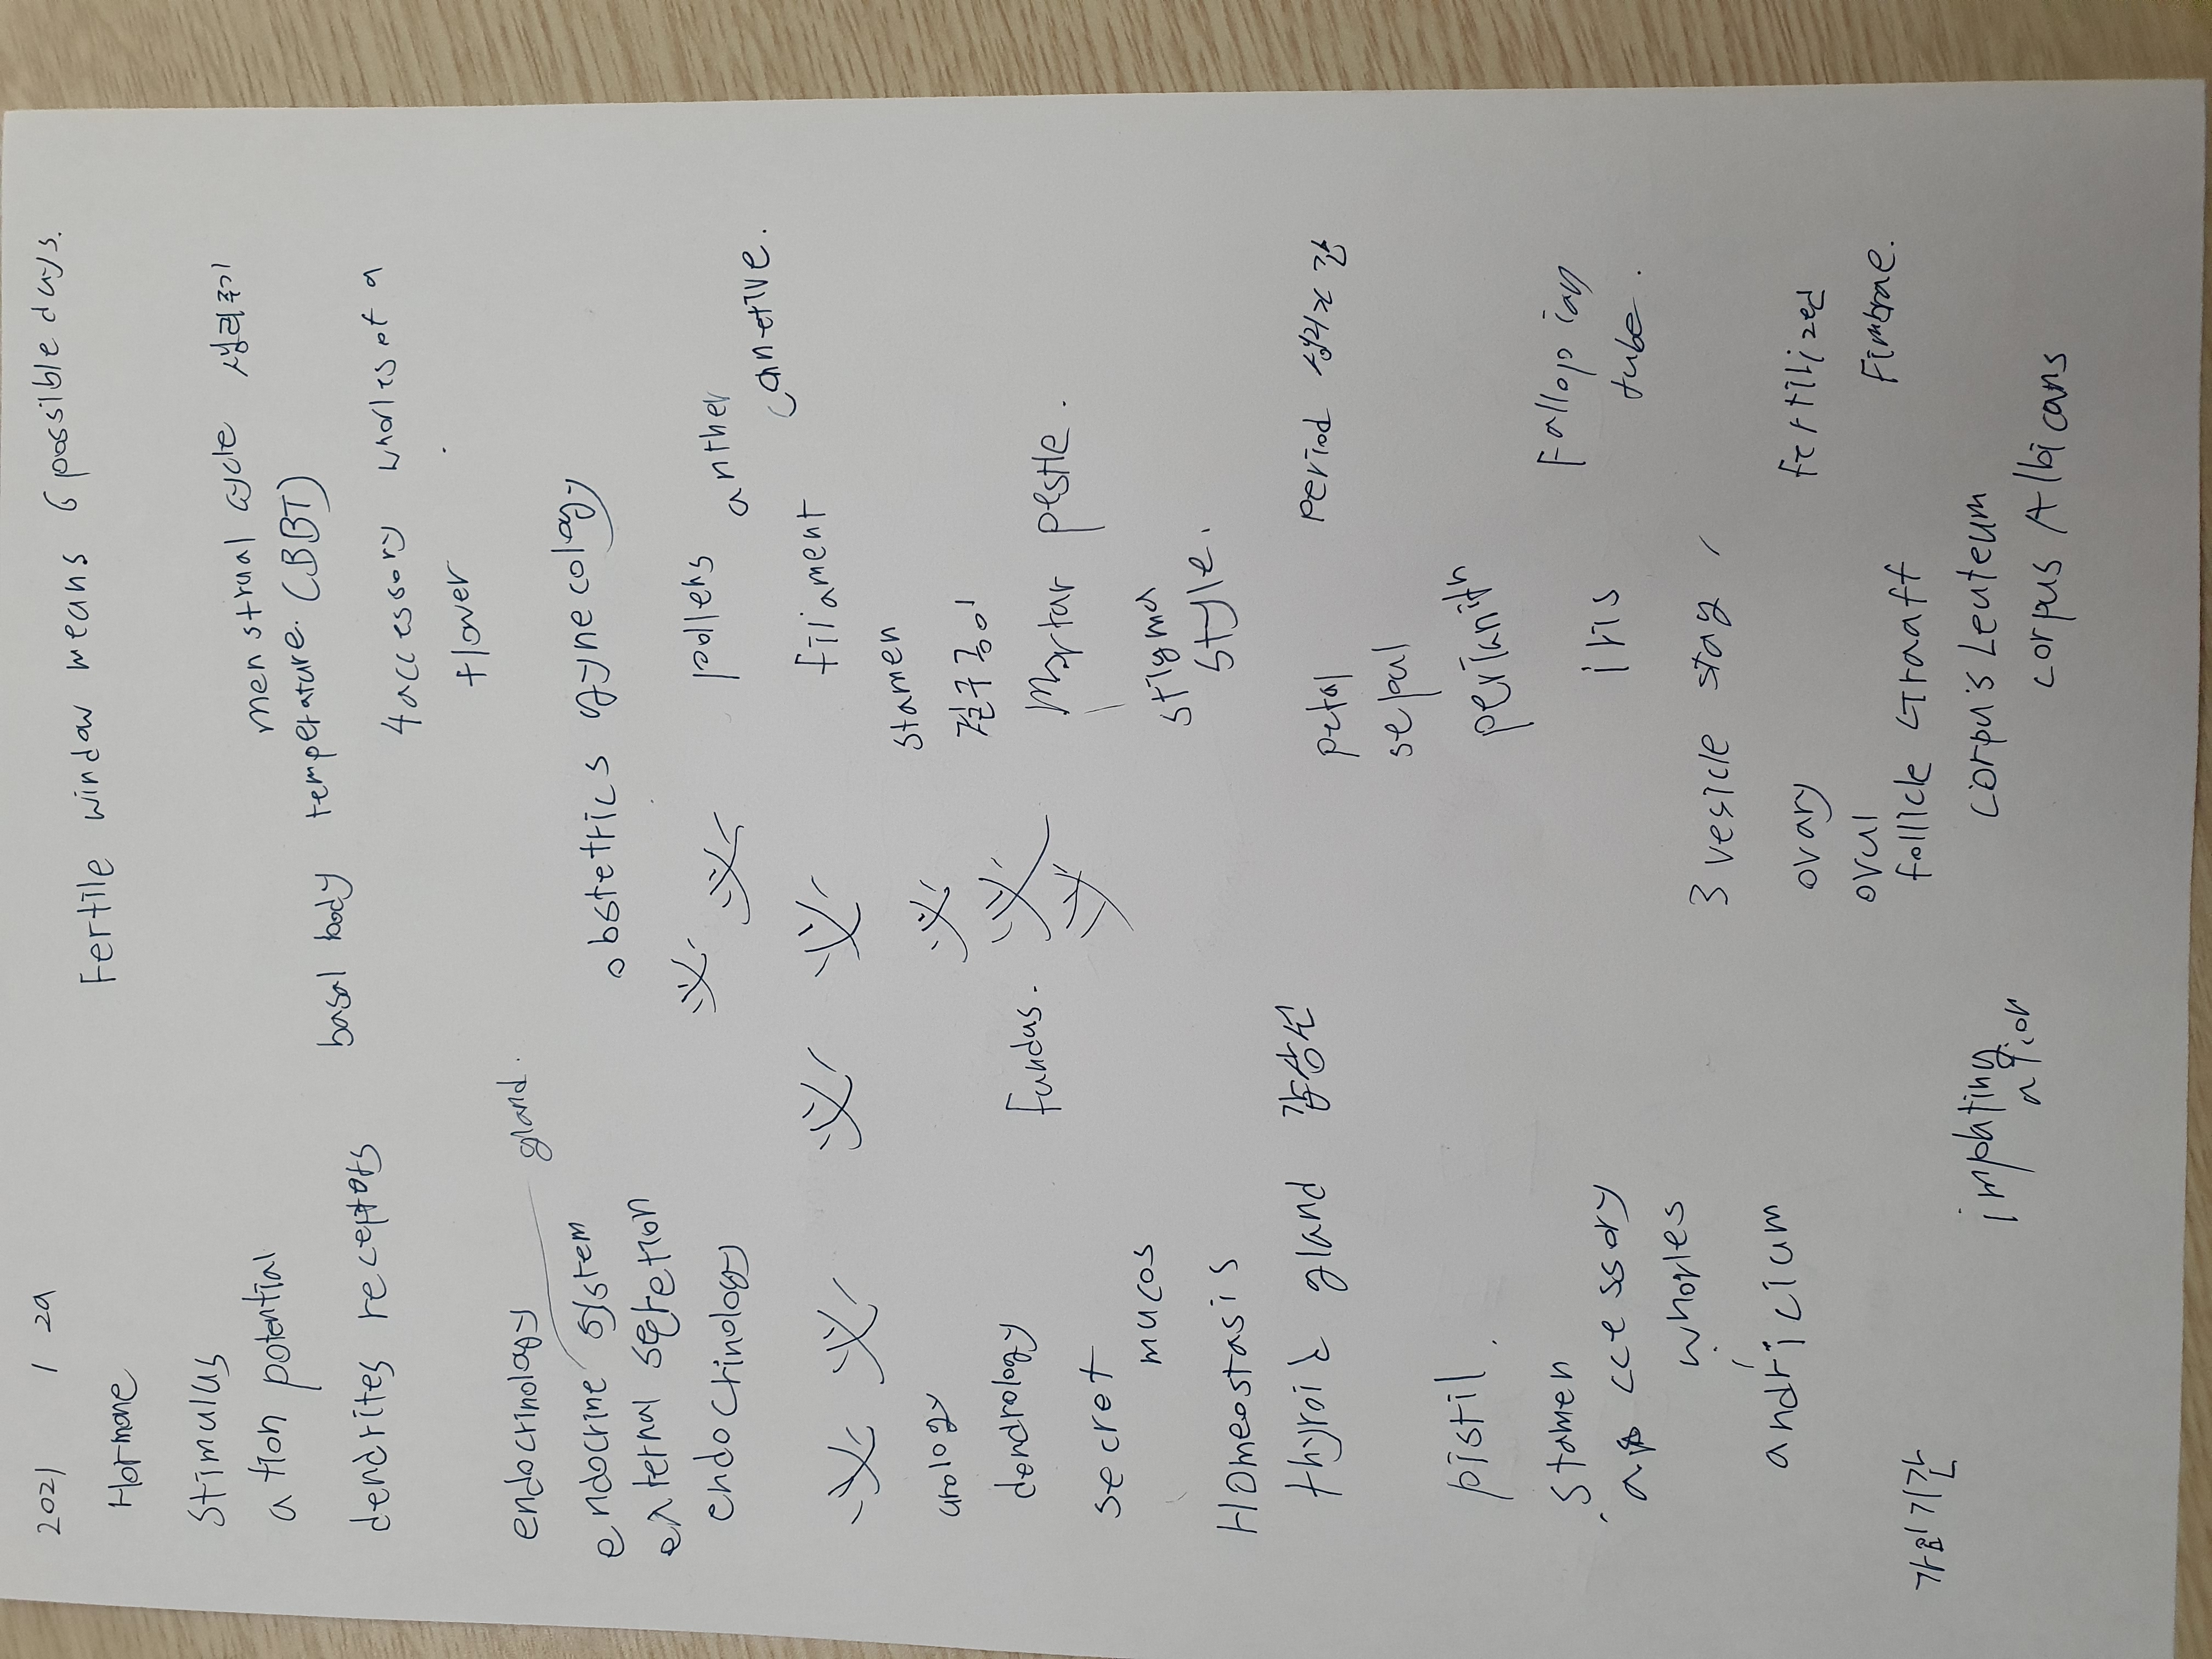 2021 1 29
Hormone
Fertile window means 6 possible days.
stimulus
ation potential
menstrual cycle 생리주기
dendrites receptors
basal body temperature (BBT)
4 accessory whorles of a
flower
endocrinology gland.
endocrine system
external secretion
endochinology
obstetrics gynecology
pollens anther
filament connetive.
urology
dendrology
stamen
절구공이
fundus.
Mortar pestle.
secret
mucos
stigma
style.
Homeostasis
thyroid gland 갑상선
petal period
sepal
pistil.
perianth
stamen
accessory
whorles
iris
Fallopian
tube.
andricium
3 vesicle stay,
ovary fertilized
oval Fimbrae.
follicle Graaff
가임기간
implating
ation
corpus Leuteum
corpus Albicans